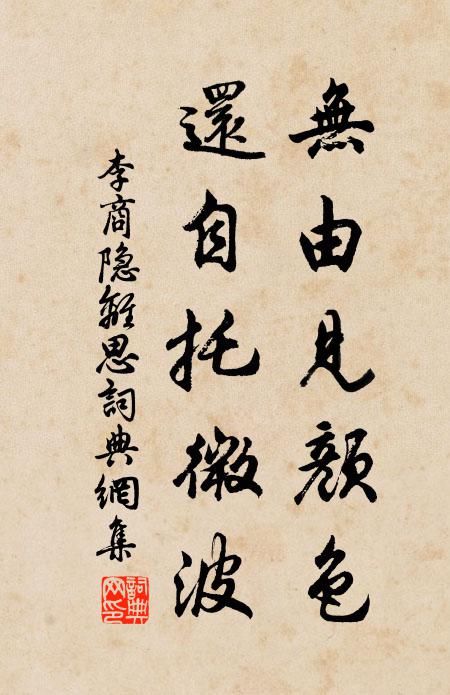 無由見顏色
還自托微波
李商隐離思詞典網集
詞典網印